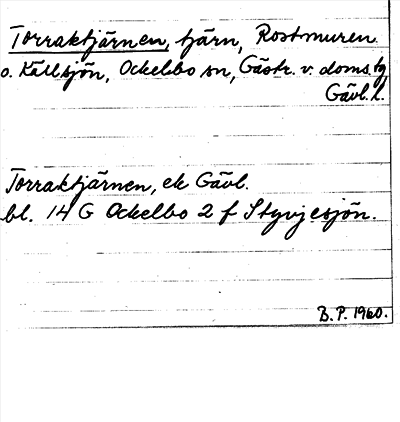 Torraktjärnen, tjärn, Rostmuren
o. Källsjön, Ockelbo sn, Gästr. v. doms. tg
Gävl. l.
Torraktjärnen, ek Gävl.
bl. 14 G Ockelbo 2 f Styvjesjön.
B.P. 1960.